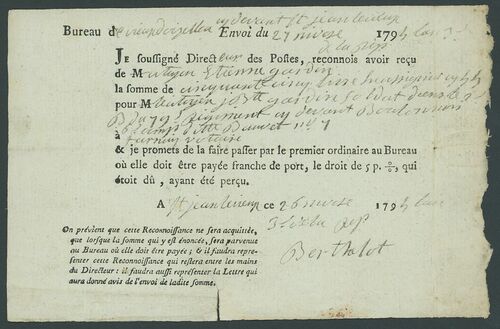 Bureau d' cy devant St jean
Envoi du 27 nivose 1795 lan 3e
de la rep
JE soussigné Directeur des Postes, reconnois avoir reçu
de M citoyen Etienne gardin
la somme de cinquante cinq livre
pour M Citoyen J Bte gardin Soldat dans le 2e
79e Regiment cy devant Boulonnois
& je promets de la faire passer par le premier ordinaire au Bureau
où elle doit être payée franche de port, le droit de 5 p. %, qui
étoit dû, ayant été perçu.
A St jean ce 26 nivose 1795 lan
3e de la rep
Berthalot
On prévient que cette Reconnoissance ne sera acquittée,
que lorsque la somme qui y est énoncée, sera parvenue
au Bureau où elle doit être payée ; & il faudra repré-
senter cette Reconnoissance qui restera entre les mains
du Directeur : il faudra aussi représenter la Lettre qui
aura donné avis de l'envoi de ladite somme.